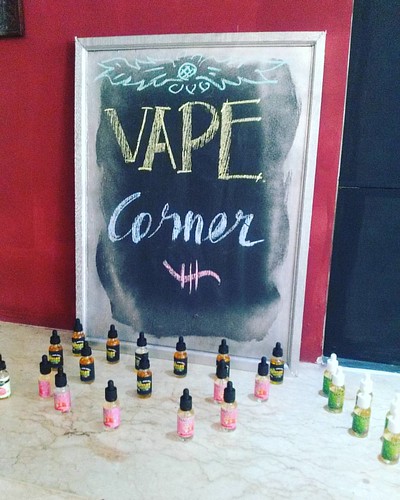 VAPE
Corner